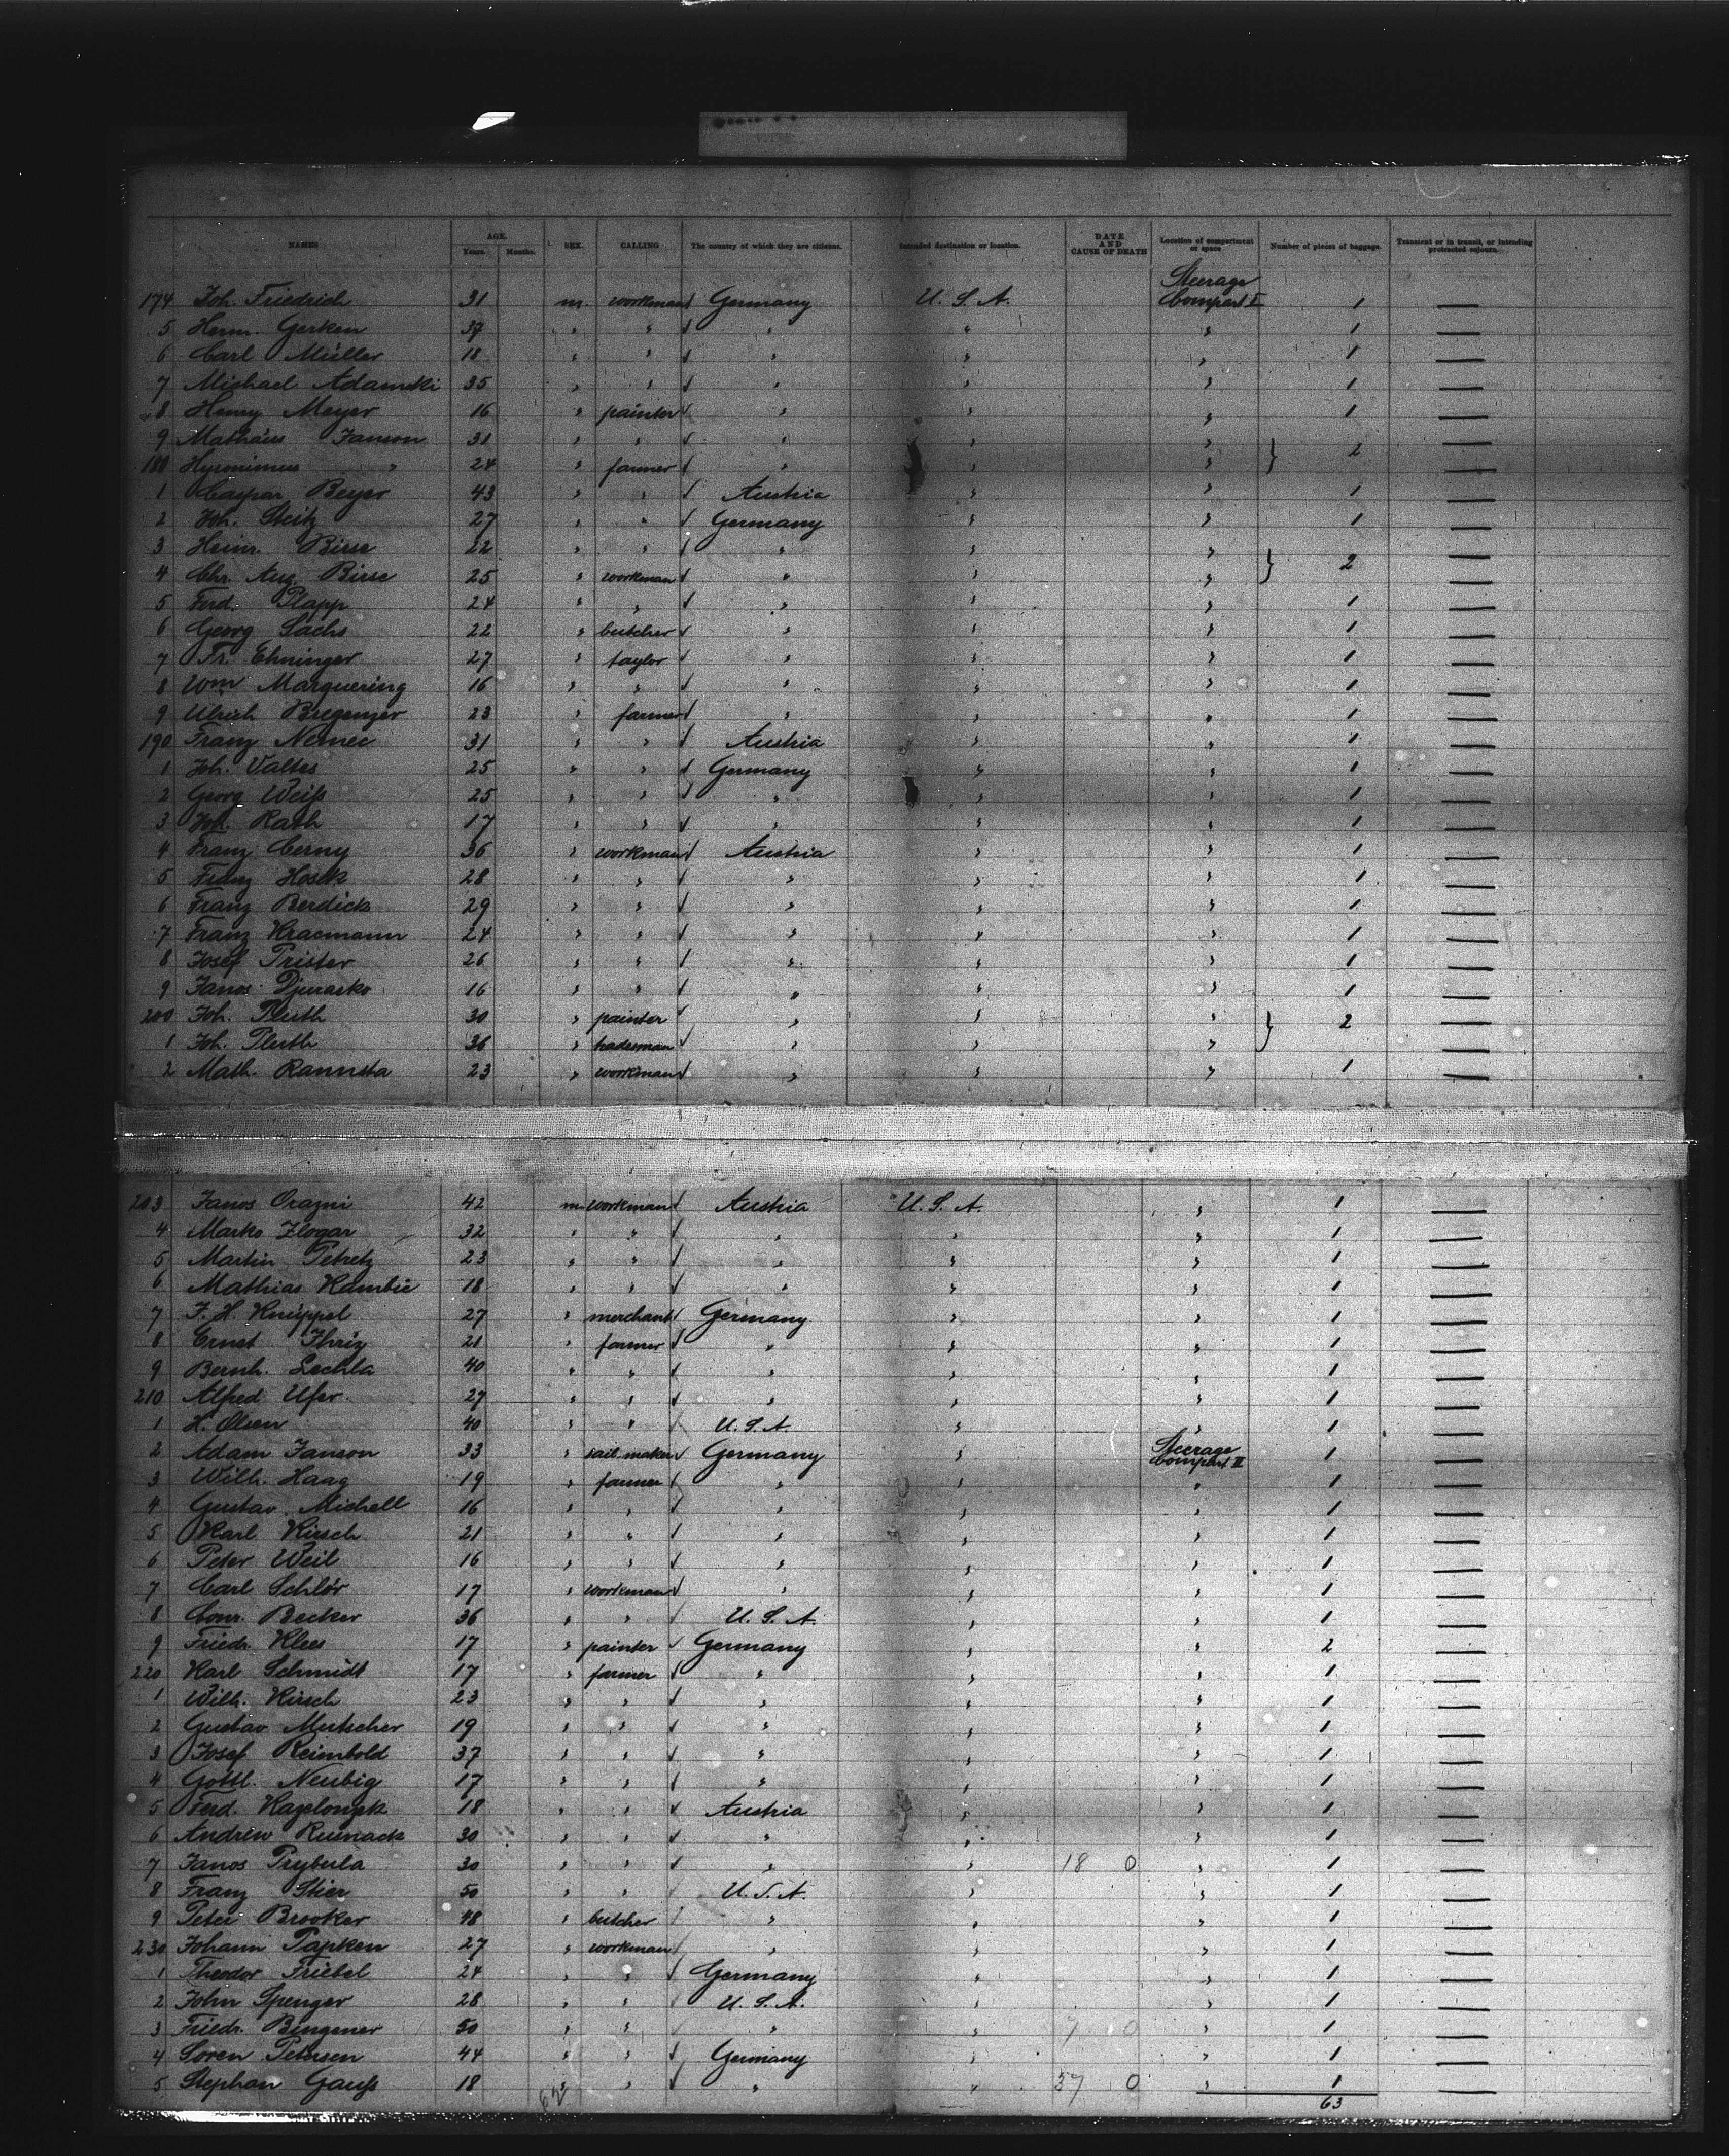 NAMES AGE. Years. Months. SEX. CALLING The country of which they are citizens. Intended destination or location. DATE AND CAUSE OF DEATH Location of compartment or space Number of pieces of baggage. Transient or in transit, or intending protracted sojourn.
174 Joh. Friedrich 31 m. workman Germany U. S. A. Steerage Compart I 1 —
5 Herm. Gerken 37 " " " " " 1 —
6 Carl Müller 18 " " " " " 1 —
7 Michael Adamski 35 " " " " " 1 —
8 Henry Meyer 16 " painter " " " 1 —
9 Mathäus Janson 31 " " " " " } 2 —
180 Hyronimus " 24 " farmer " " " —
1 Caspar Beyer 43 " " Austria " " 1 —
2 Joh. Steitz 27 " " Germany " " 1 —
3 Heinr. Birse 22 " " " " " } 2 —
4 Chr. Aug. Birse 25 " workman " " " —
5 Ferd. Plapp 24 " " " " " 1 —
6 Georg Sachs 22 " butcher " " " 1 —
7 Fr. Ehninger 27 " taylor " " " 1 —
8 Wm Marquering 16 " " " " " 1 —
9 Ulrich Bregenzer 23 " farmer " " " 1 —
190 Franz Nemec 31 " " Austria " " 1 —
1 Joh. Valtes 25 " " Germany " " 1 —
2 Georg Weiß 25 " " " " " 1 —
3 Joh. Rath 17 " " " " " 1 —
4 Franz Cerny 36 " workman Austria " " 1 —
5 Franz Hosek 28 " " " " " 1 —
6 Franz Berdick 29 " " " " " 1 —
7 Franz Hracmann 24 " " " " " 1 —
8 Josef Prister 26 " " " " " 1 —
9 Janos Djurasko 16 " " " " " 1 —
200 Joh. Pluth 30 " painter " " " } 2 —
1 Joh. Pluth 36 " tradesman " " " —
2 Math. 23 " workman " " " 1 —
203 Janos 42 m. workman Austria U. S. A. " 1 —
4 Marko Zlogar 32 " " " " " 1 —
5 Martin Petretz 23 " " " " " 1 —
6 Mathias Kambic 18 " " " " " 1 —
7 F. H. Knüppel 27 " merchant Germany " " 1 —
8 Ernst Ihrig 21 " farmer " " " 1 —
9 Bernh. Lechla 40 " " " " " 1 —
210 Alfred Ufer 27 " " " " " 1 —
1 H. Olsen 40 " " U. S. A. " " 1 —
2 Adam Janson 33 " sail maker Germany " Steerage Compart II 1 —
3 Wilh. Haag 19 " farmer " " " 1 —
4 Gustav Michell 16 " " " " " 1 —
5 Karl Kirsch 21 " " " " " 1 —
6 Peter Weil 16 " " " " " 1 —
7 Carl Schlör 17 " workman " " " 1 —
8 Conr. Becker 36 " " U. S. A. " " 1 —
9 Friedr. Klees 17 " painter Germany " " 2 —
220 Karl Schmidt 17 " farmer " " " 1 —
1 Wilh. Kirsch 23 " " " " " 1 —
2 Gustav Mutscher 19 " " " " " 1 —
3 Josef Reimbold 37 " " " " " 1 —
4 Gottl. Neubig 17 " " " " " 1 —
5 Ferd. 18 " " Austria " " 1 —
6 Andrew 30 " " " " " 1 —
7 Janos Prybula 30 " " " " 18 0 " 1 —
8 Franz Stier 50 " " U. S. A. " " 1 —
9 Peter Brooker 48 " butcher " " " 1 —
230 Johann Papken 27 " workman " " " 1 —
1 Theodor Friebel 24 " " Germany " " 1 —
2 John Spenger 28 " " U. S. A. " " 1 —
3 Friedr. Bingener 50 " " " " 7 0 " 1 —
4 Soren Petersen 44 " " Germany " " 1 —
5 Stephan Gauß 18 " " " " 37 0 " 1 —
62 63